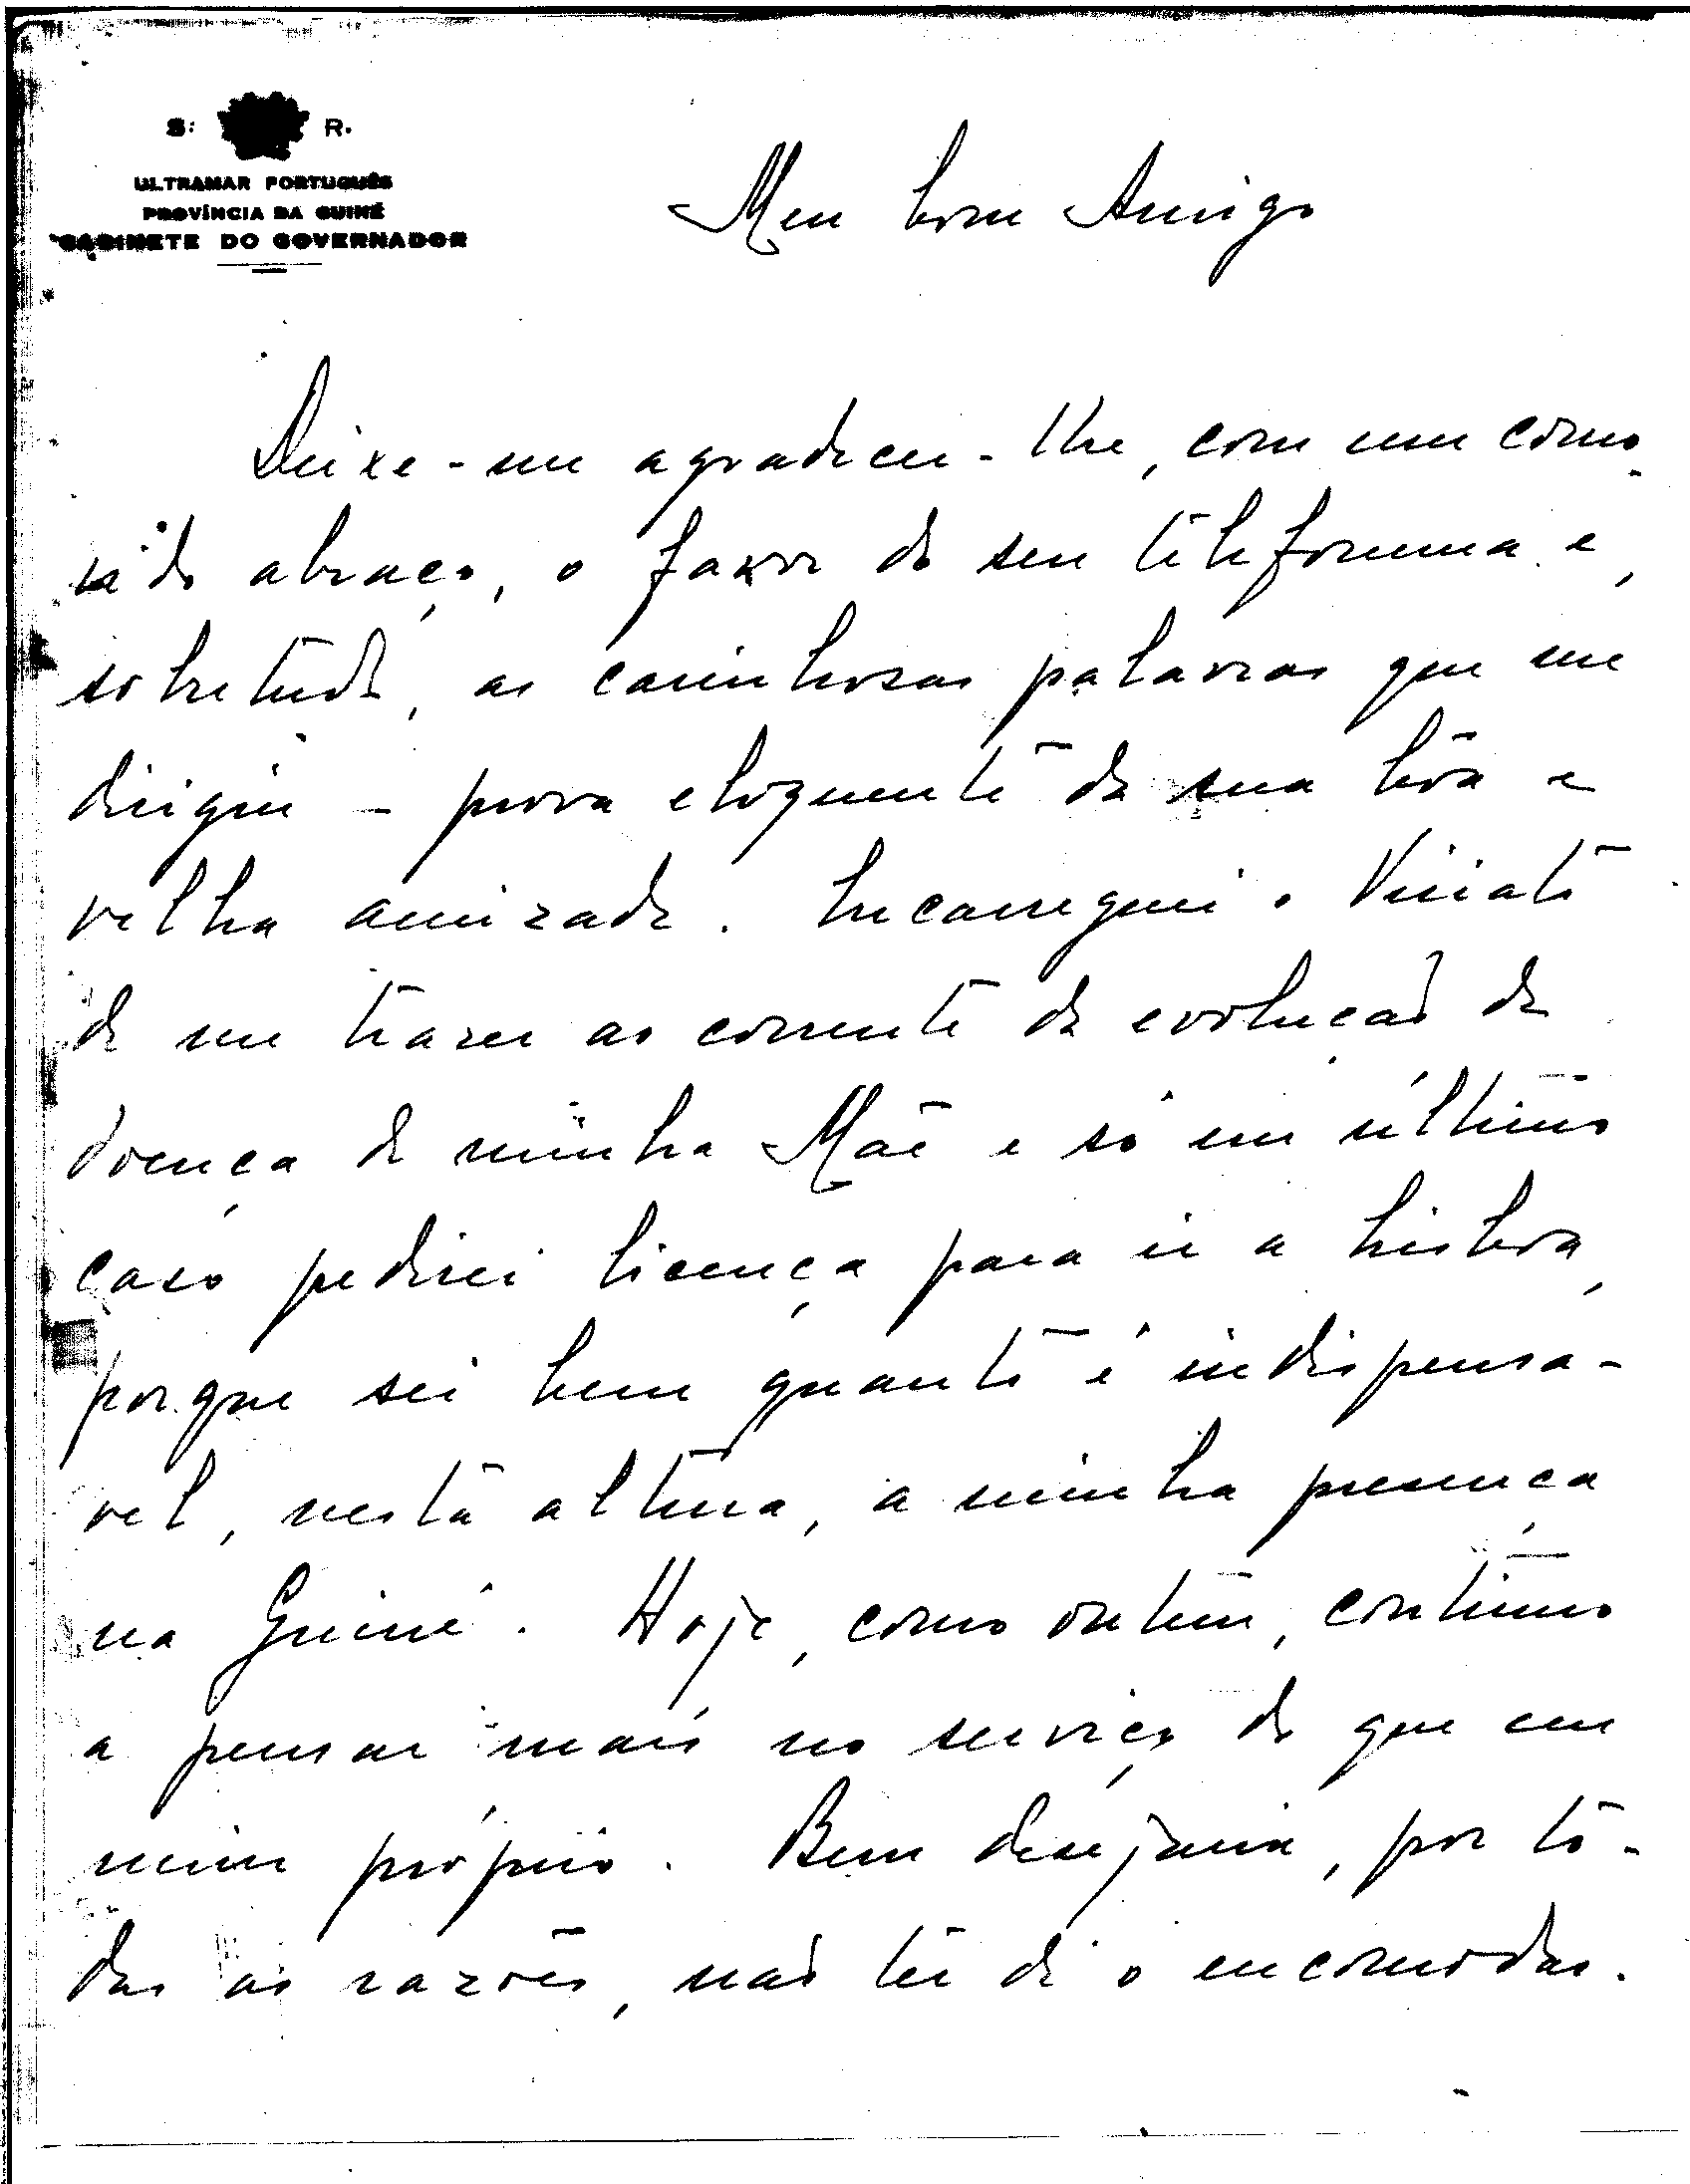 S. R.
ULTRAMAR PORTUGUÊS
PROVÍNCIA DA GUINÉ
GABINETE DO GOVERNADOR
Meu bom Amigo
Deixe-me agradecer-lhe, com um como-
vido abraço, o favor do seu telefonema e,
sobretudo, as carinhosas palavras que me
dirigiu - prova eloquente da sua bôa e
velha amizade. Encarreguei o Viriato
de me trazer ao corrente da evolução da
doença de minha Mãe e só em último
caso pedirei licença para ir a Lisboa,
porque sei bem quanto é indispensa-
vel, nesta altura, a minha presença
na Guiné. Hoje, como ontem, continuo
a pensar mais no serviço do que em
mim próprio. Bem desejaria, por to-
das as razões, não ter de o encomodar.